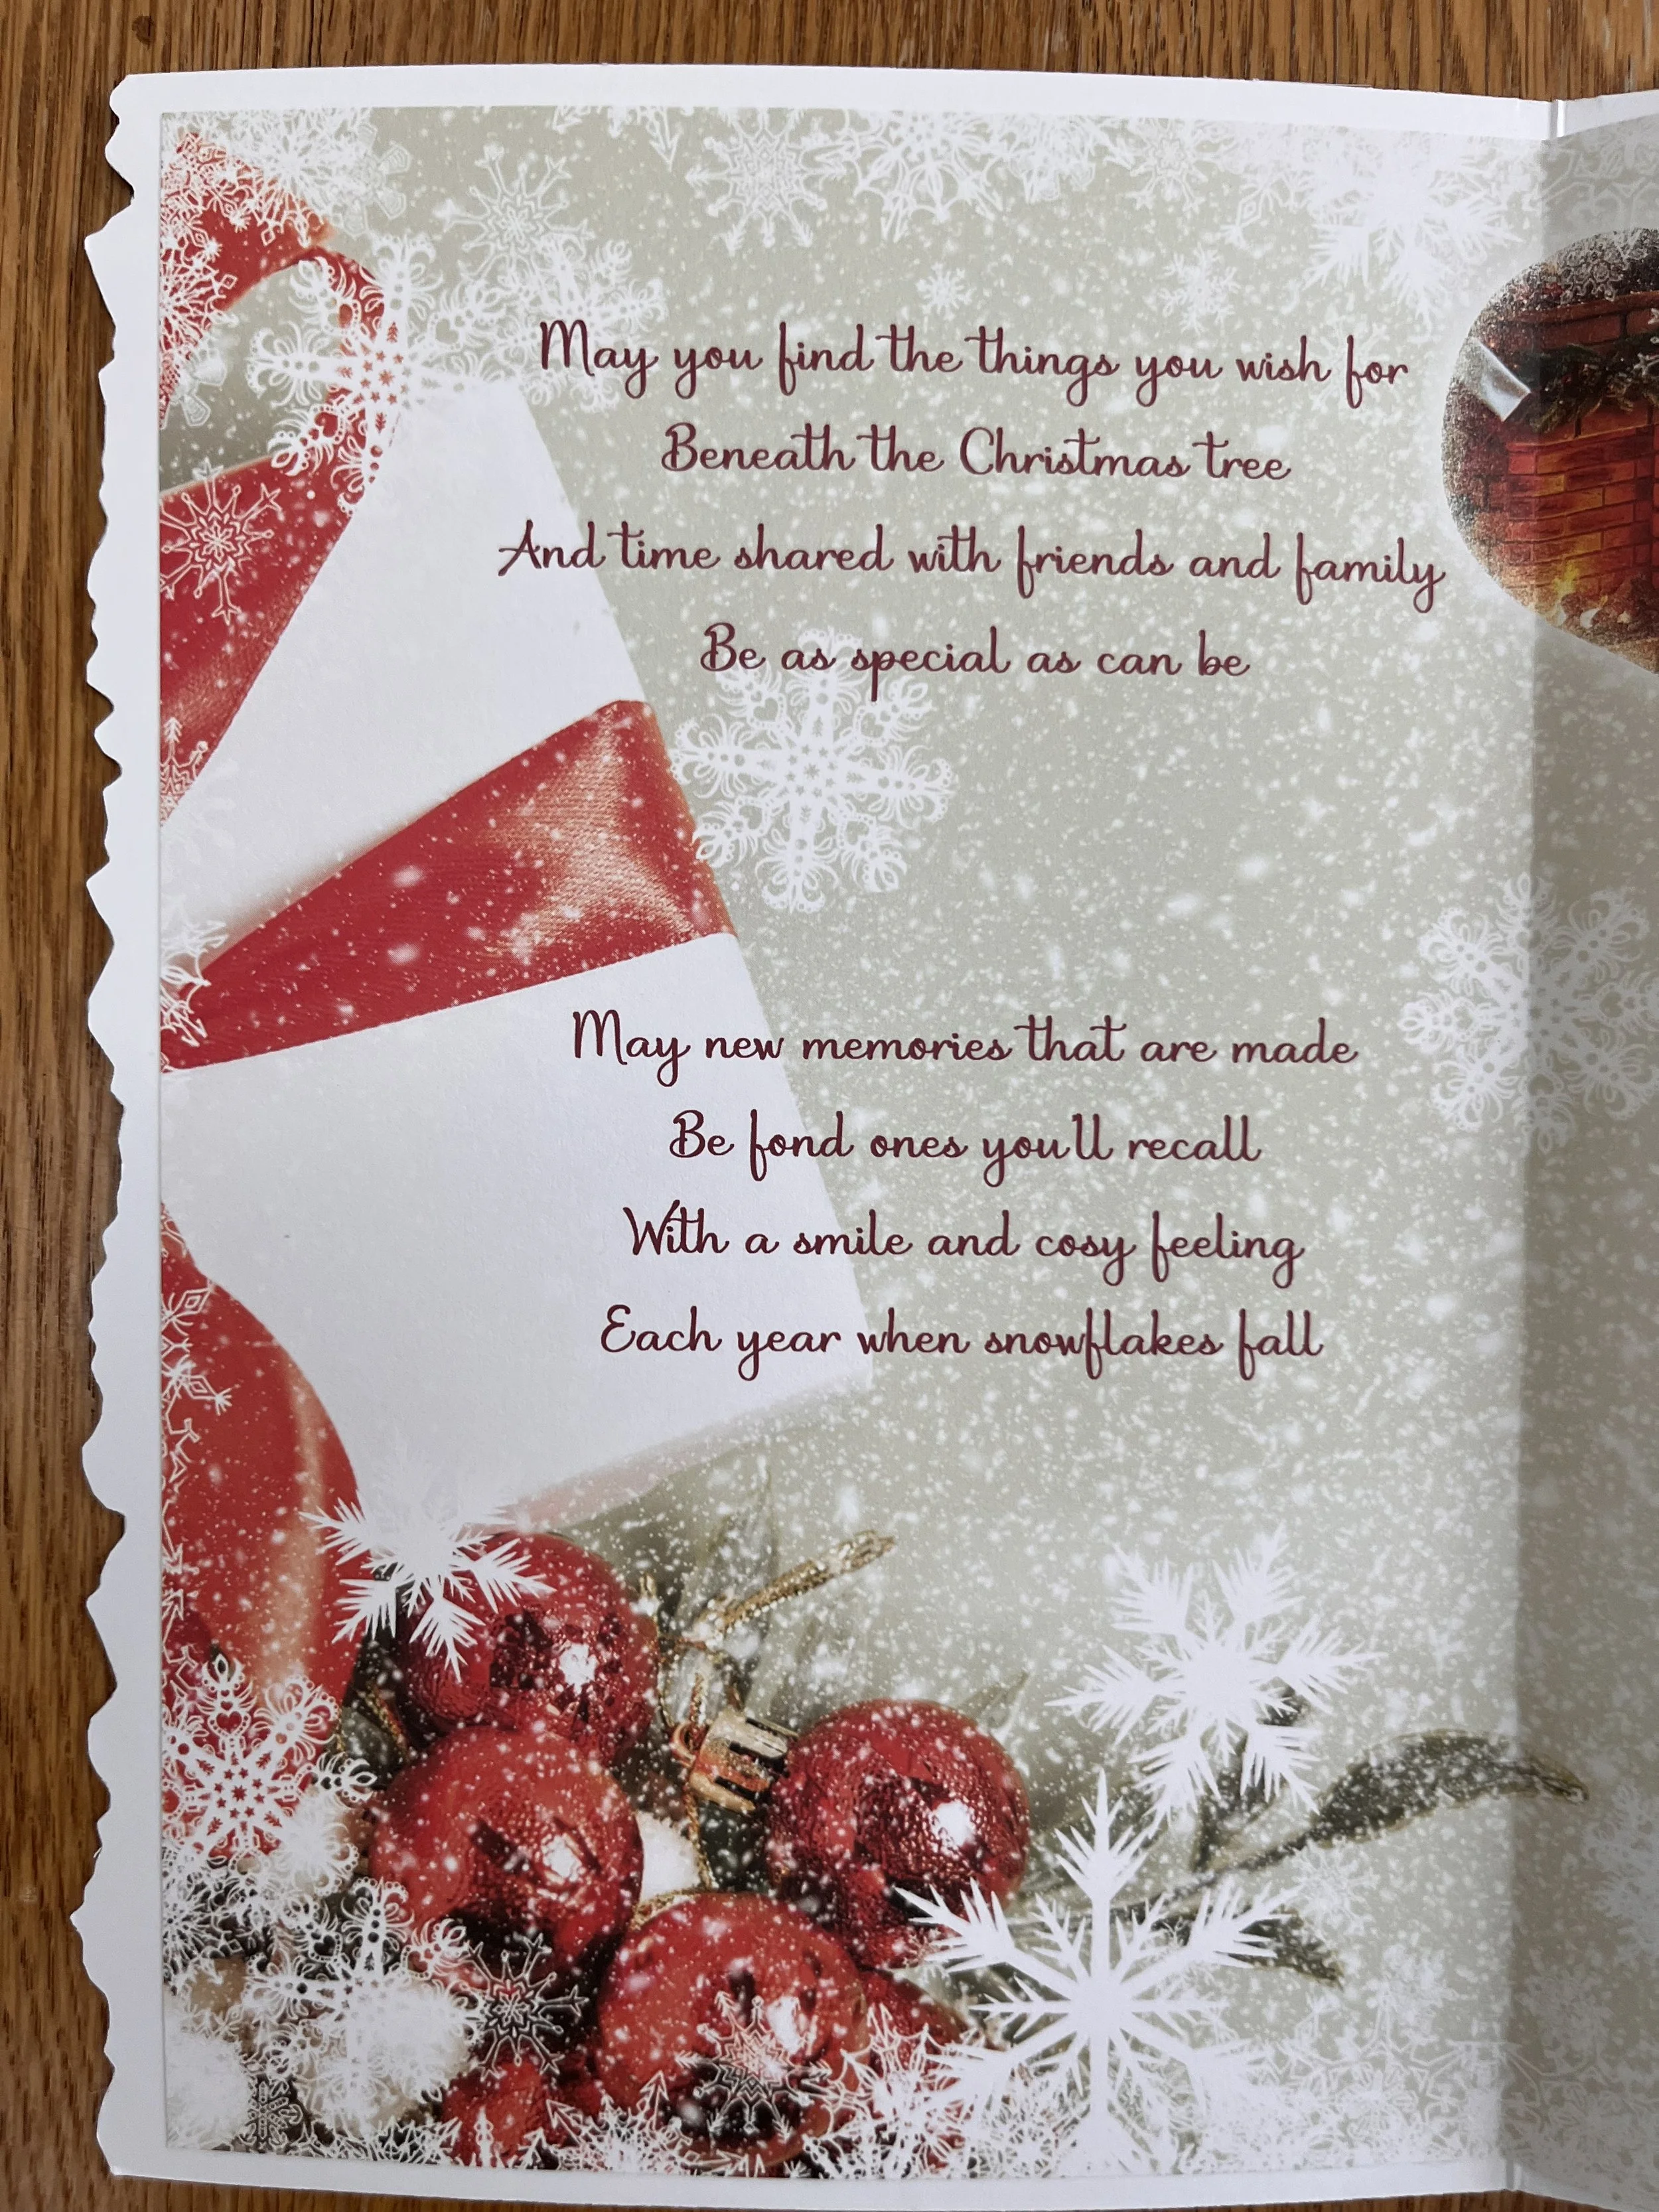 May you find the things you wish for
Beneath the Christmas tree
And time shared with friends and family
Be as special as can be
May new memories that are made
Be fond ones you'll recall
With a smile and cosy feeling
Each year when snowflakes fall